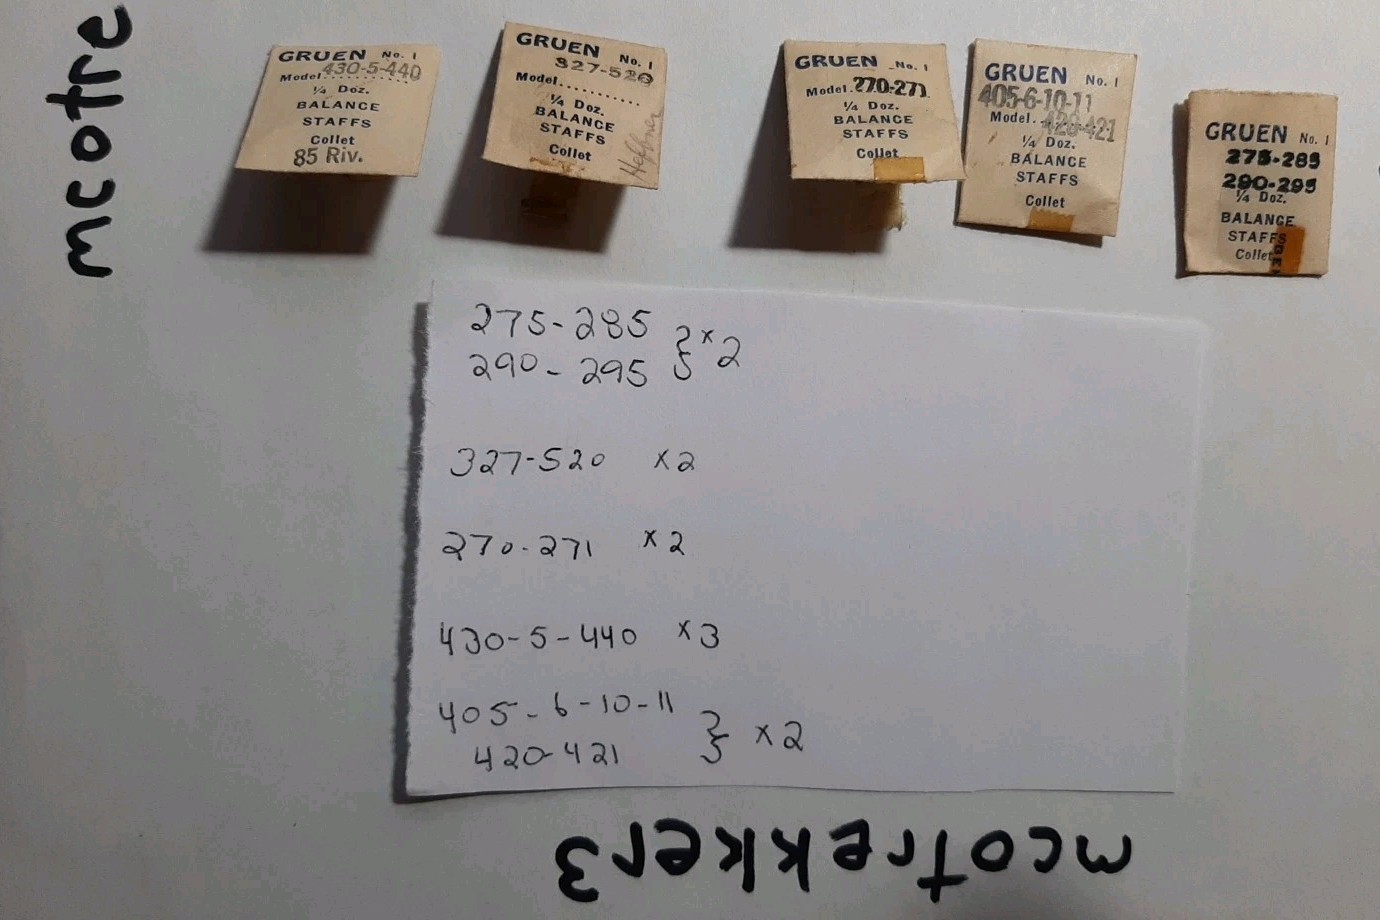 mcotre
GRUEN No. 1
Model 430-5-440
1/4 Doz.
BALANCE
STAFFS
Collet
85 Riv.
GRUEN No. 1
327-520
Model...........
1/4 Doz.
BALANCE
STAFFS
Collet
Heffner
GRUEN No. 1
Model. 270-271
1/4 Doz.
BALANCE
STAFFS
Collet
GRUEN No. 1
405-6-10-11
Model.. 420-421
1/4 Doz.
BALANCE
STAFFS
Collet
GRUEN No. 1
275-285
290-295
1/4 Doz.
BALANCE
STAFFS
Collet
275-285
290-295 } x2
327-520 x2
270-271 x2
430-5-440 x3
405-6-10-11
420-421 } x2
mcotrekker3